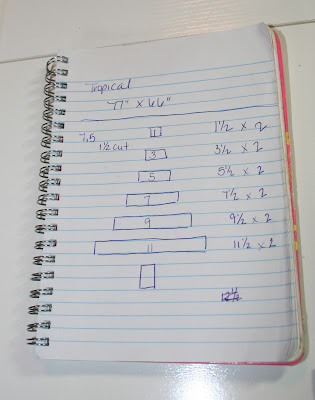 Tropical
77" x 66"
7.5 1½ x 2
1½ cut 3 3½ x 2
5 5½ x 2
7 7½ x 2
9 9½ x 2
11 11½ x 2